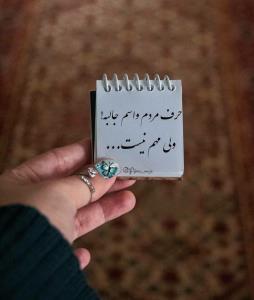 حرف مردم واسم جالبه!
ولی مهم نیست...